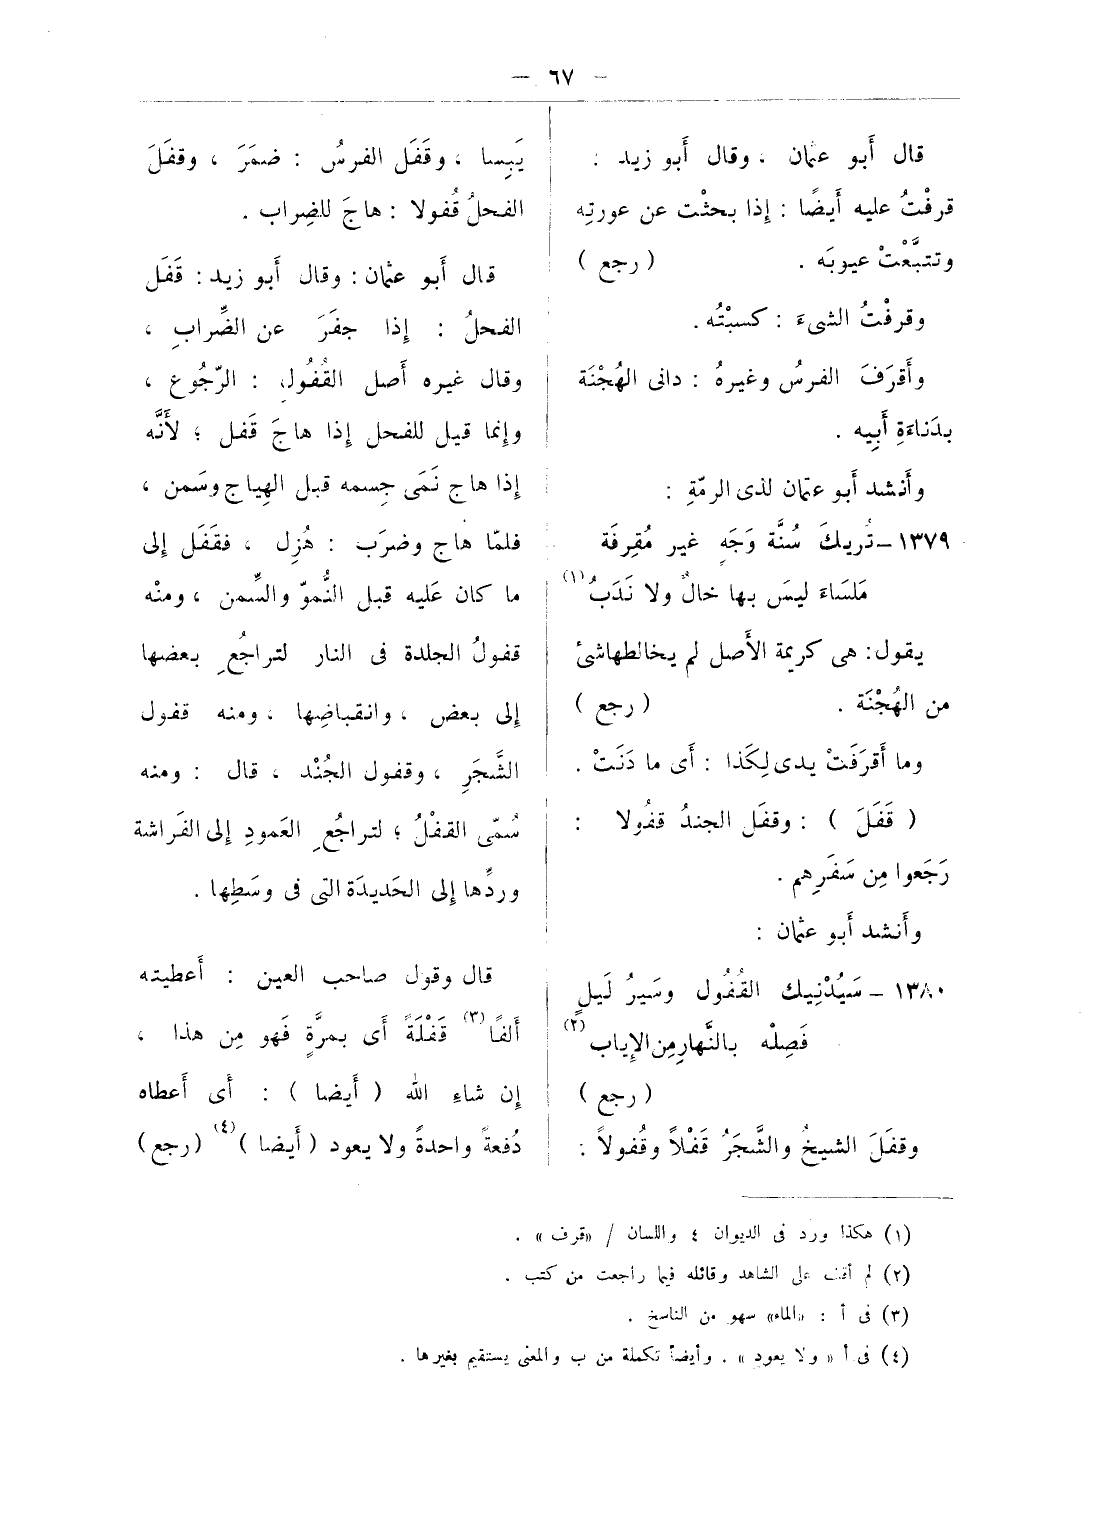 — ٦٧ —
قال أَبو عثمان ، وقال أَبو زيد :
قرفْتُ عليه أَيضًا : إِذا بحثْت عن عورتِه
وتتبَّعْتْ عيوبَه . ( رجع )
وقرفْتُ الشىءَ : كسبْتُه .
وأَقرَفَ الفرسُ وغيرهُ : دانى الهُجْنَة
بدَناءَةِ أَبِيه .
وأَنشد أَبو عثمان لذى الرمّةِ :
١٣٧٩ – تُريكَ سُنَّة وَجَهٍ غير مُقرِفَة
مَلسَاءَ ليسَ بها خالٌ ولا نَدَبُ (١)
يقول : هى كريمة الأَصل لم يخالطهاشئ
من الهُجْنَة . ( رجع )
وما أَقرَفَتْ يدى لِكَذا : أَى ما دَنَتْ .
( قَفَلَ ) : وقفَل الجندُ قفُولا :
رَجَعوا مِن سَفَرِهم .
وأَنشد أَبو عثمان :
١٣٨٠ – سَيُدْنِيك القُفُول وسَيرُ لَيلٍ
فَصِلْه بالنَّهارِ مِن الإِياب (٢)
( رجع )
وقفَلَ الشيخُ والشَّجَرُ قَفْلاً وقُفولاً :
يَبِسا ، وقَفَل الفرسُ : ضمَرَ ، وقفَلَ
الفحلُ قُفولا : هاجَ للضِراب .
قال أَبو عثمان : وقال أَبو زيد : قَفَل
الفحلُ : إِذا جفَرَ عن الضِّرابِ ،
وقال غيره أَصل القُفُولِ : الرّجُوع ،
وإِنما قيل للفحل إِذا هاجَ قَفل ؛ لأَنَّه
إِذا هاج نَمَى جِسمه قبل الهِياج وسَمن ،
فلمّا هاج وضرَب : هُزِل ، فقَفَل إِلى
ما كان عَليه قبل النُّموّ والسِّمن ، ومنْه
قفولُ الجلدة فى النار لتراجُعِ بعضها
إِلى بعض ، وانقباضِها ، ومنه قفول
الشَّجَرِ ، وقفول الجُنْد ، قال : ومنه
سُمّى القفْلُ ؛ لتراجُعِ العَمودِ إِلى الفَراشة
وردِّها إِلى الحَديدَة التى فى وسَطِها .
قال وقول صاحب العين : أَعطيته
أَلفًا (٣) قَفْلَةً أَى بمرَّةٍ فَهو مِن هذا ،
إِن شاءِ الله ( أَيضا ) : أَى أَعطاه
دُفعةً واحدةً ولا يعود ( أَيضا ) (٤) ( رجع )
(١) هكذا ورد فى الديوان ٤ واللسان / «قرف» .
(٢) لم أقف على الشاهد وقائله فيما راجعت من كتب .
(٣) فى أ : «الماء» سهو من الناسخ .
(٤) فى أ « ولا يعود » . وأيضا تكملة من ب والمعنى يستقيم بغيرها .